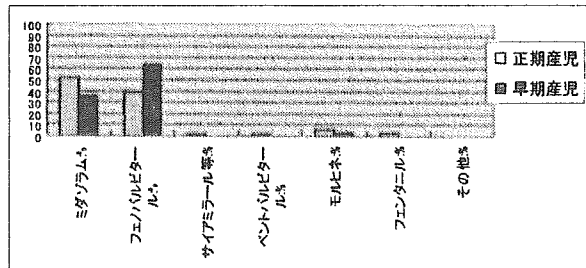 100
90
80
70
60
50
40
30
20
10
0
正期産児
早期産児
ミダゾラム:%
フェノバルビター
ル:%
サイアミラール等:%
ペントバルビター
ル:%
モルヒネ:%
フェンタニル:%
その他:%